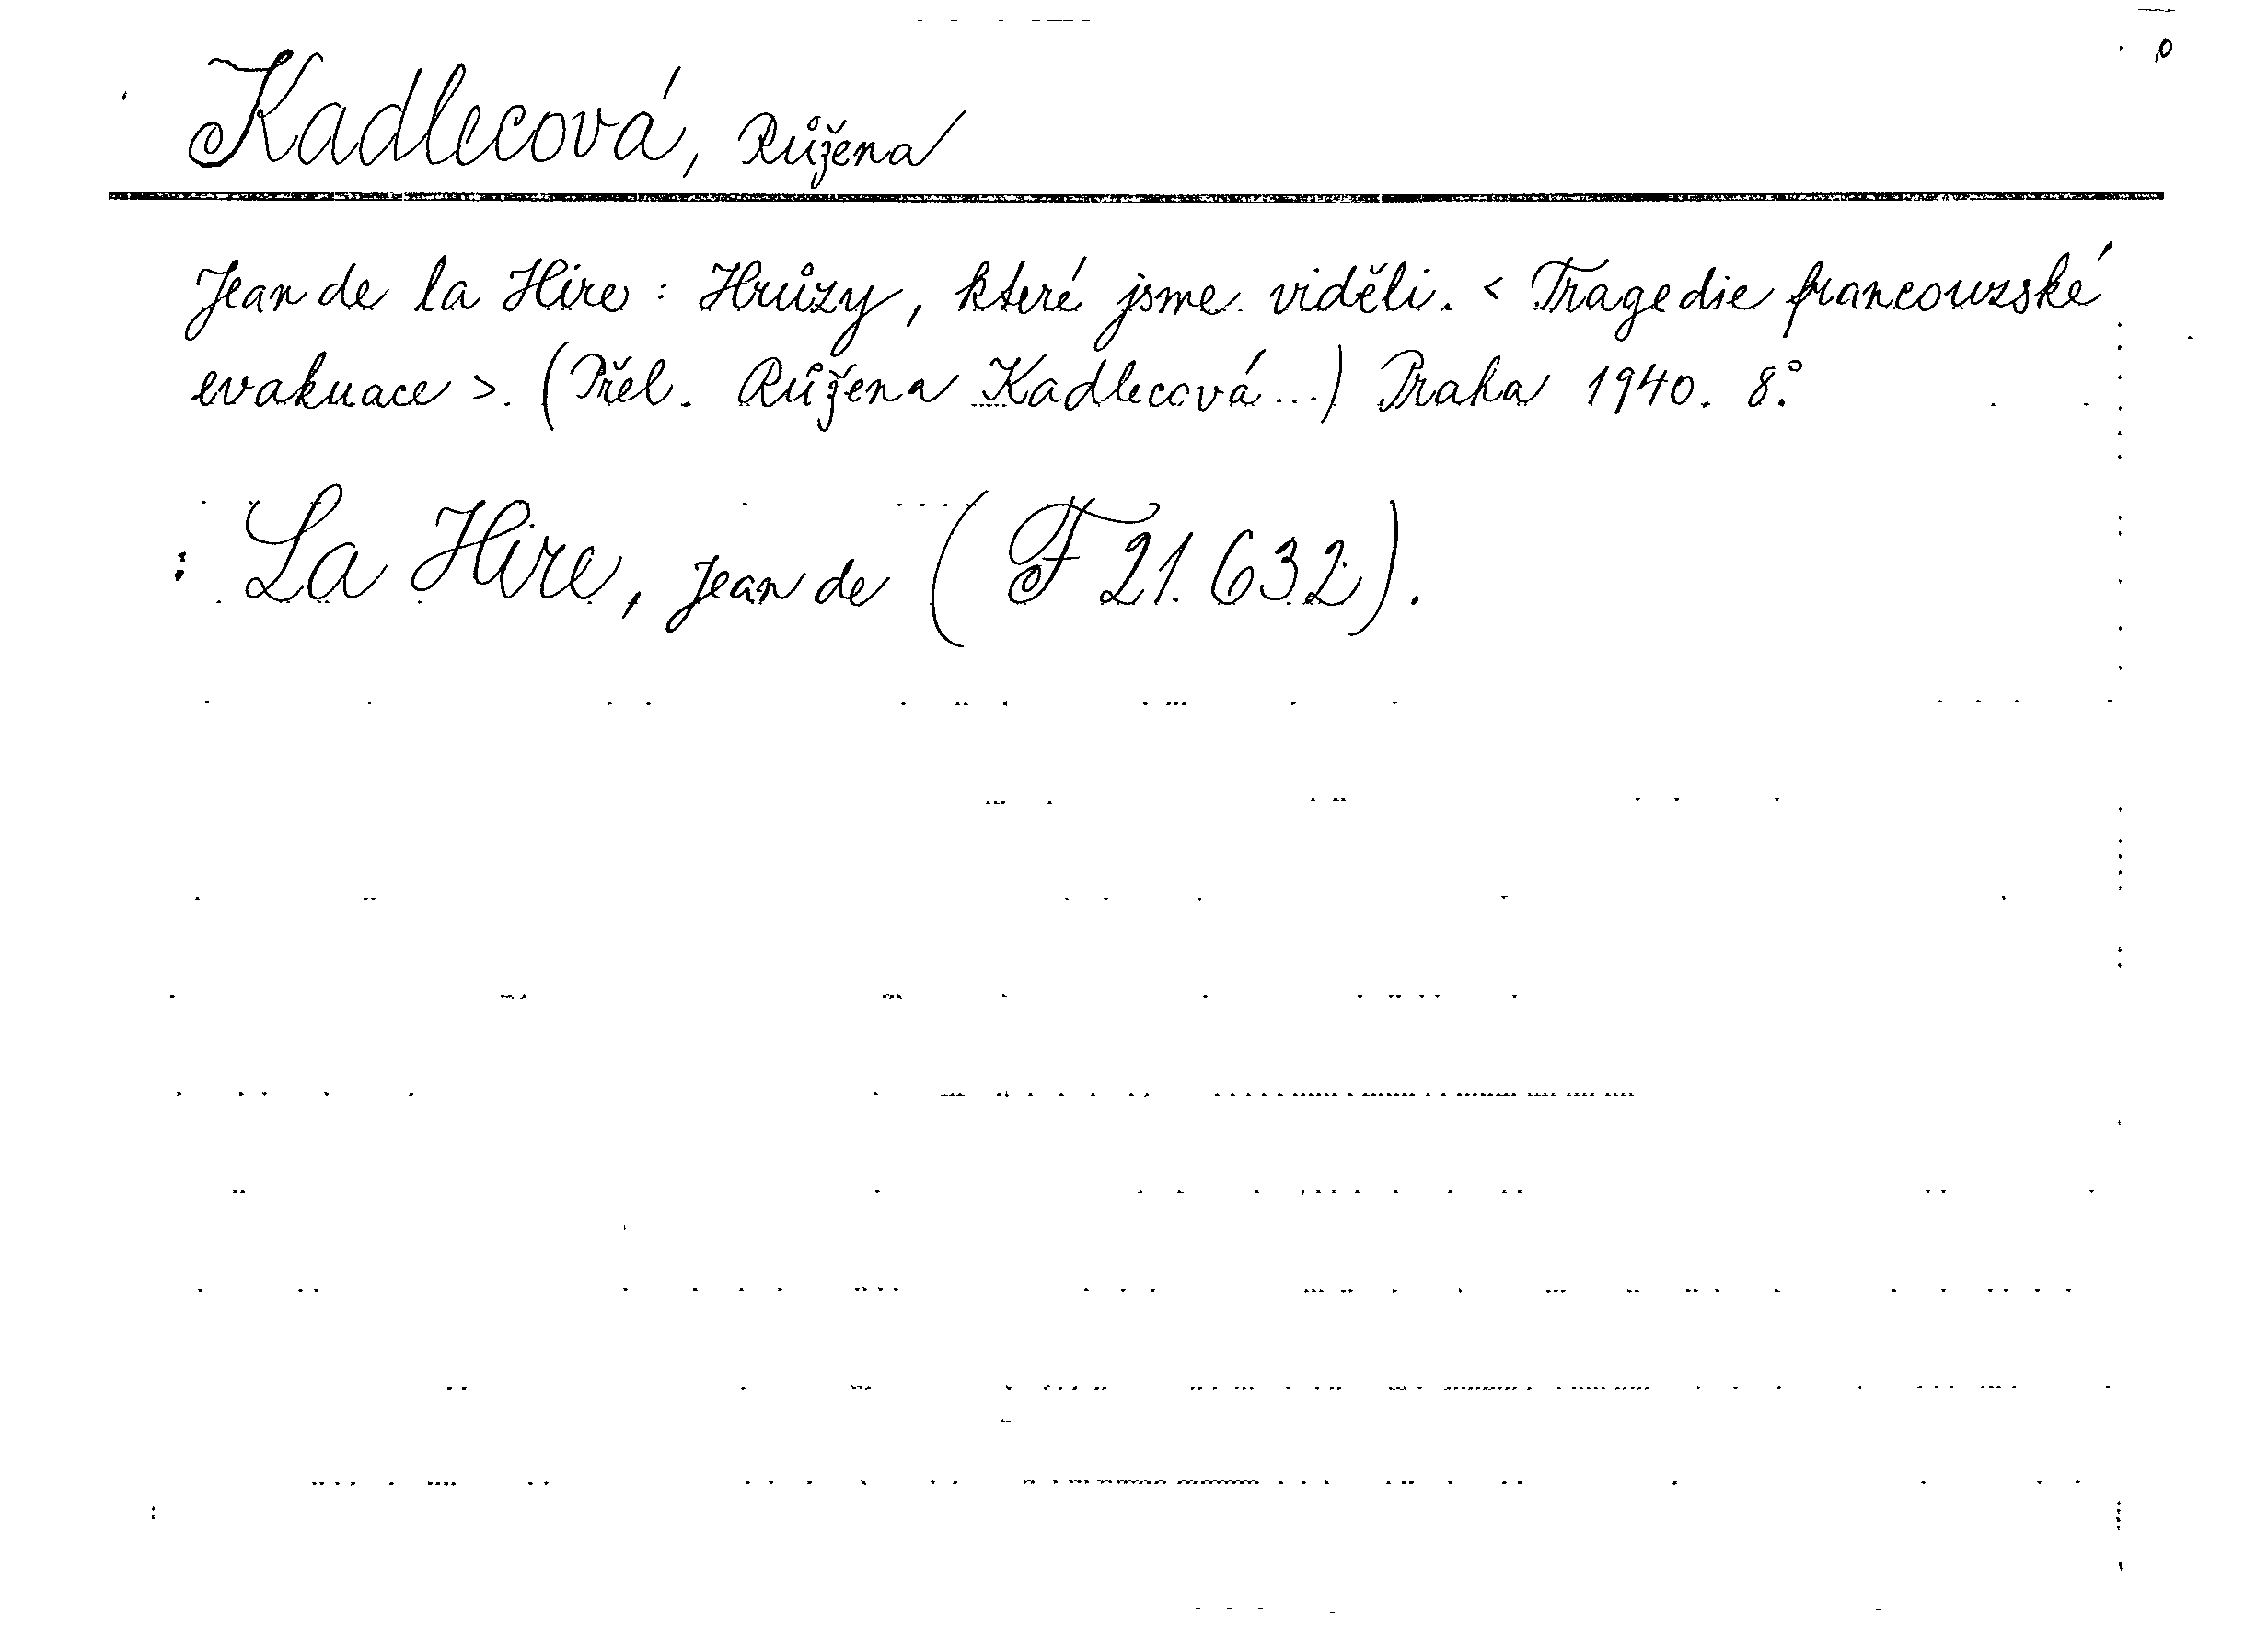 Kadlecová, Růžena
Jean de la Hire : Hrůzy, které jsme viděli. < Tragedie francouzské
evakuace >. (Přel. Růžena Kadlecová...) Praha 1940. 8°.
: La Hire, Jean de ( F 21.632).